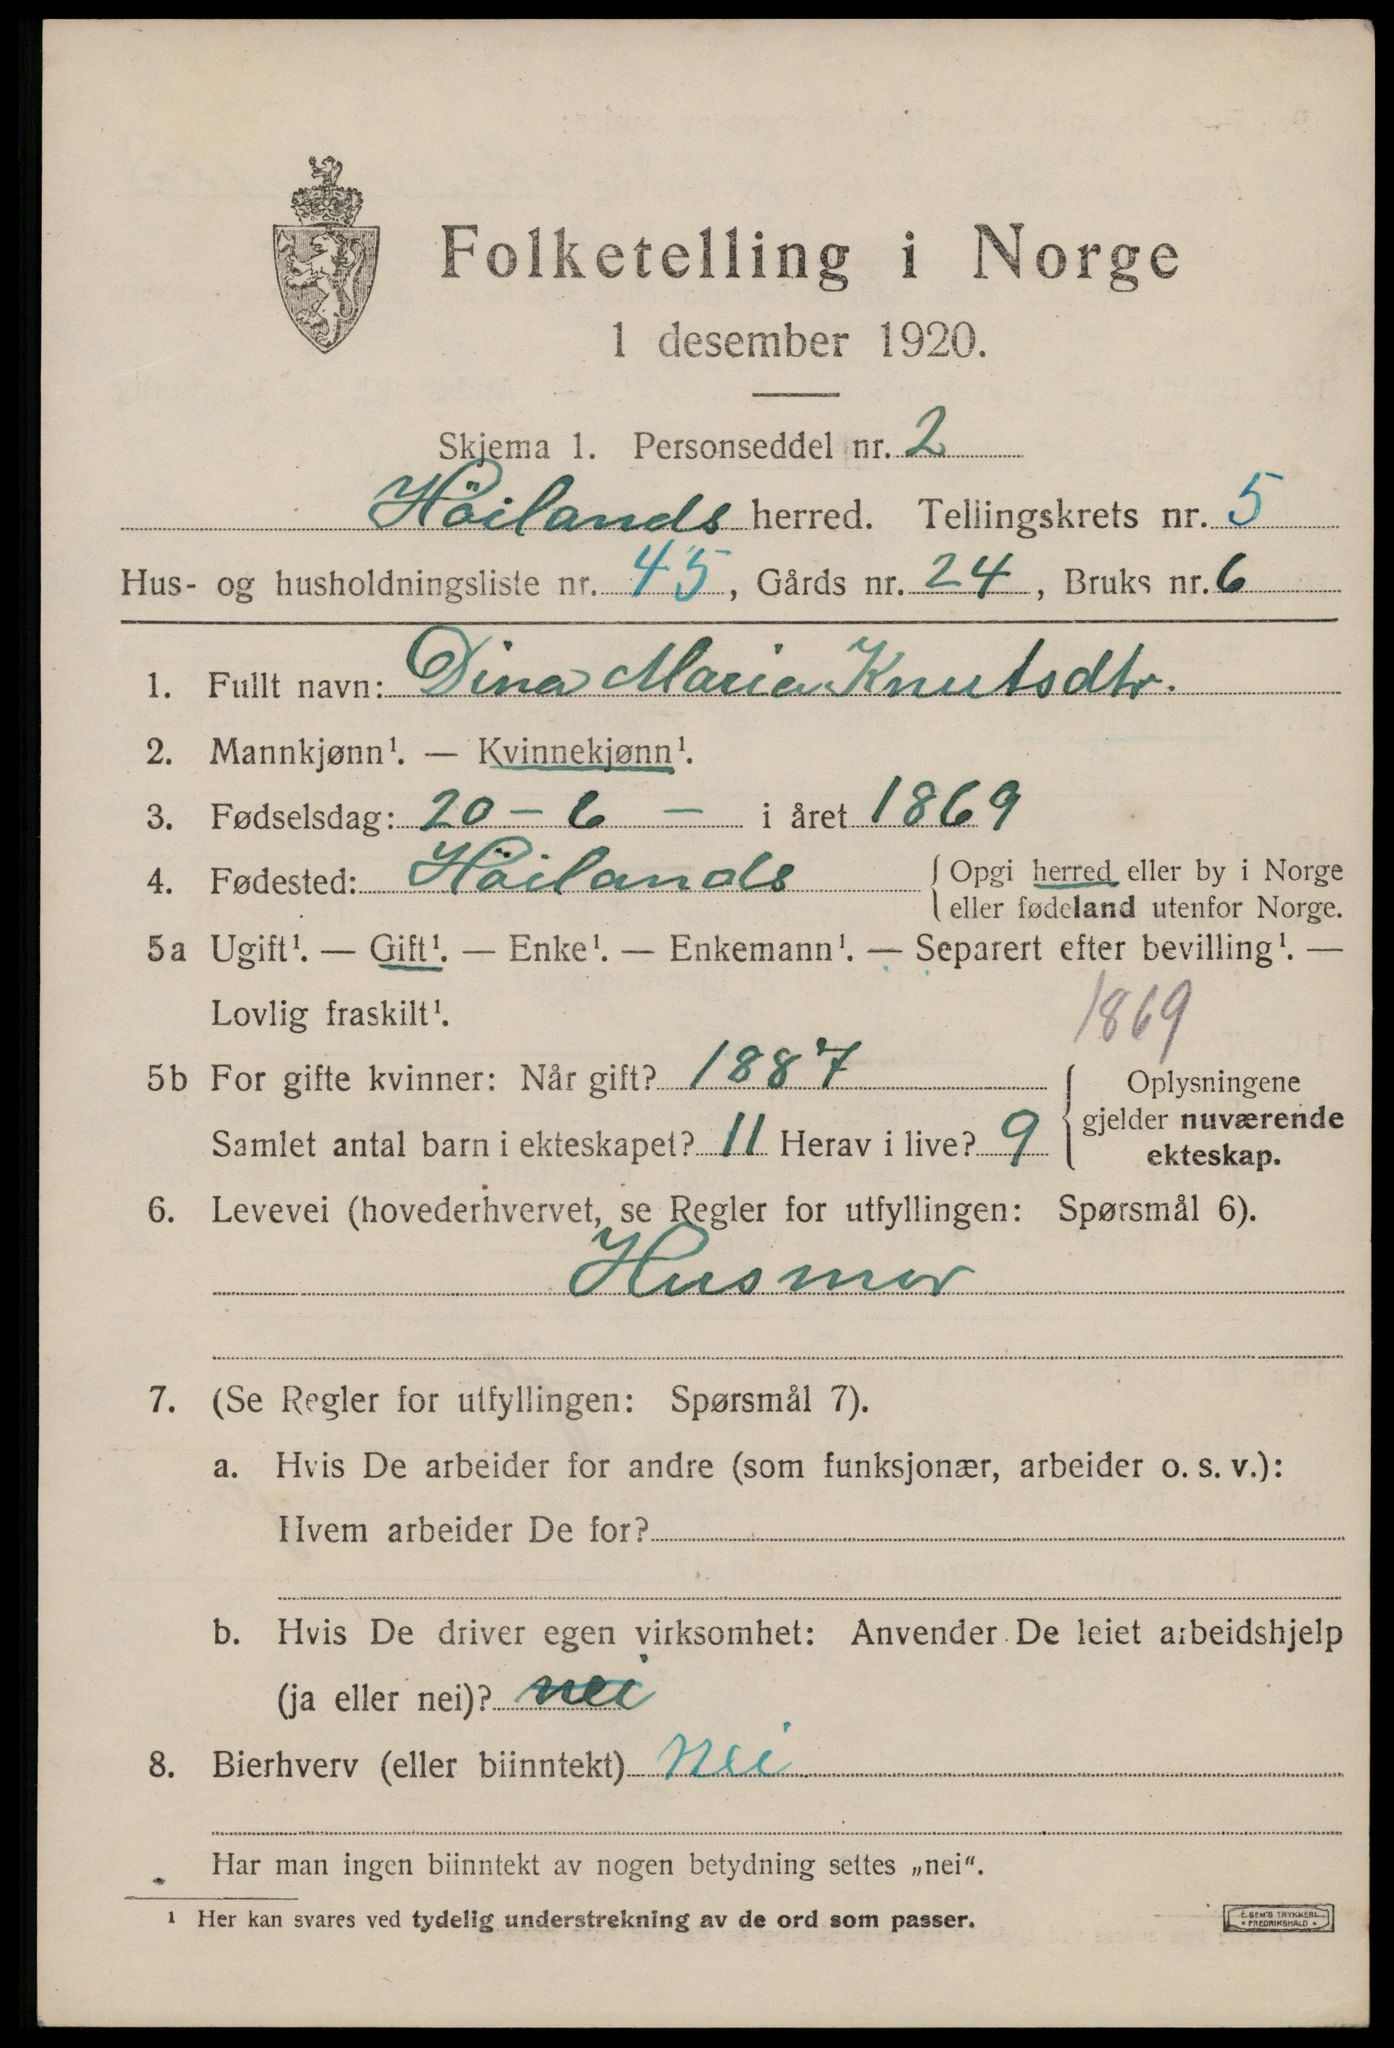 Folketelling i Norge
1 desember 1920.
Skjema 1. Personseddel nr. 2
Höilands herred. Tellingskrets nr. 5
Hus- og husholdningsliste nr. 45, Gårds nr. 24, Bruks nr. 6
1. Fullt navn: Dina Maria Knutsdtr.
2. Mannkjønn¹. — Kvinnekjønn¹.
3. Fødselsdag: 20 – 6 – i året 1869
4. Fødested: Höilands { Opgi herred eller by i Norge
eller fødeland utenfor Norge.
5a Ugift¹. — Gift¹. — Enke¹. — Enkemann¹. — Separert efter bevilling¹. —
Lovlig fraskilt¹. 1869
5b For gifte kvinner: Når gift? 1887 { Oplysningene
gjelder nuværende
Samlet antal barn i ekteskapet? 11 Herav i live? 9 ekteskap.
6. Levevei (hovederhvervet, se Regler for utfyllingen: Spørsmål 6).
Husmor
7. (Se Regler for utfyllingen: Spørsmål 7).
a. Hvis De arbeider for andre (som funksjonær, arbeider o. s. v.):
Hvem arbeider De for?
b. Hvis De driver egen virksomhet: Anvender De leiet arbeidshjelp
(ja eller nei)? nei
8. Bierhverv (eller biinntekt) Nei
Har man ingen biinntekt av nogen betydning settes „nei“.
¹ Her kan svares ved tydelig understrekning av de ord som passer.
E. SEM'S TRYKKERI
FREDRIKSHALD